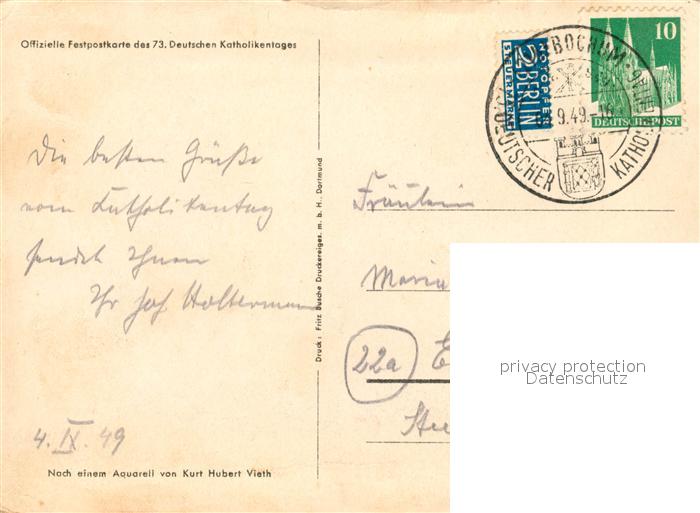 Offizielle Festpostkarte des 73. Deutschen Katholikentages
Die besten Grüße
vom Katholikentag
sendet Ihnen
Ihr Jos Holtermann
4. IX. 49
Nach einem Aquarell von Kurt Hubert Vieth
Druck: Fritz Busche Druckereiges. m. b. H., Dortmund
NOTOPFER
2 BERLIN
STEUERMARKE
10
DEUTSCHE POST
BOCHUM
9.49
DEUTSCHER KATHOL
Fräulein
Maria
22a
privacy protection
Datenschutz